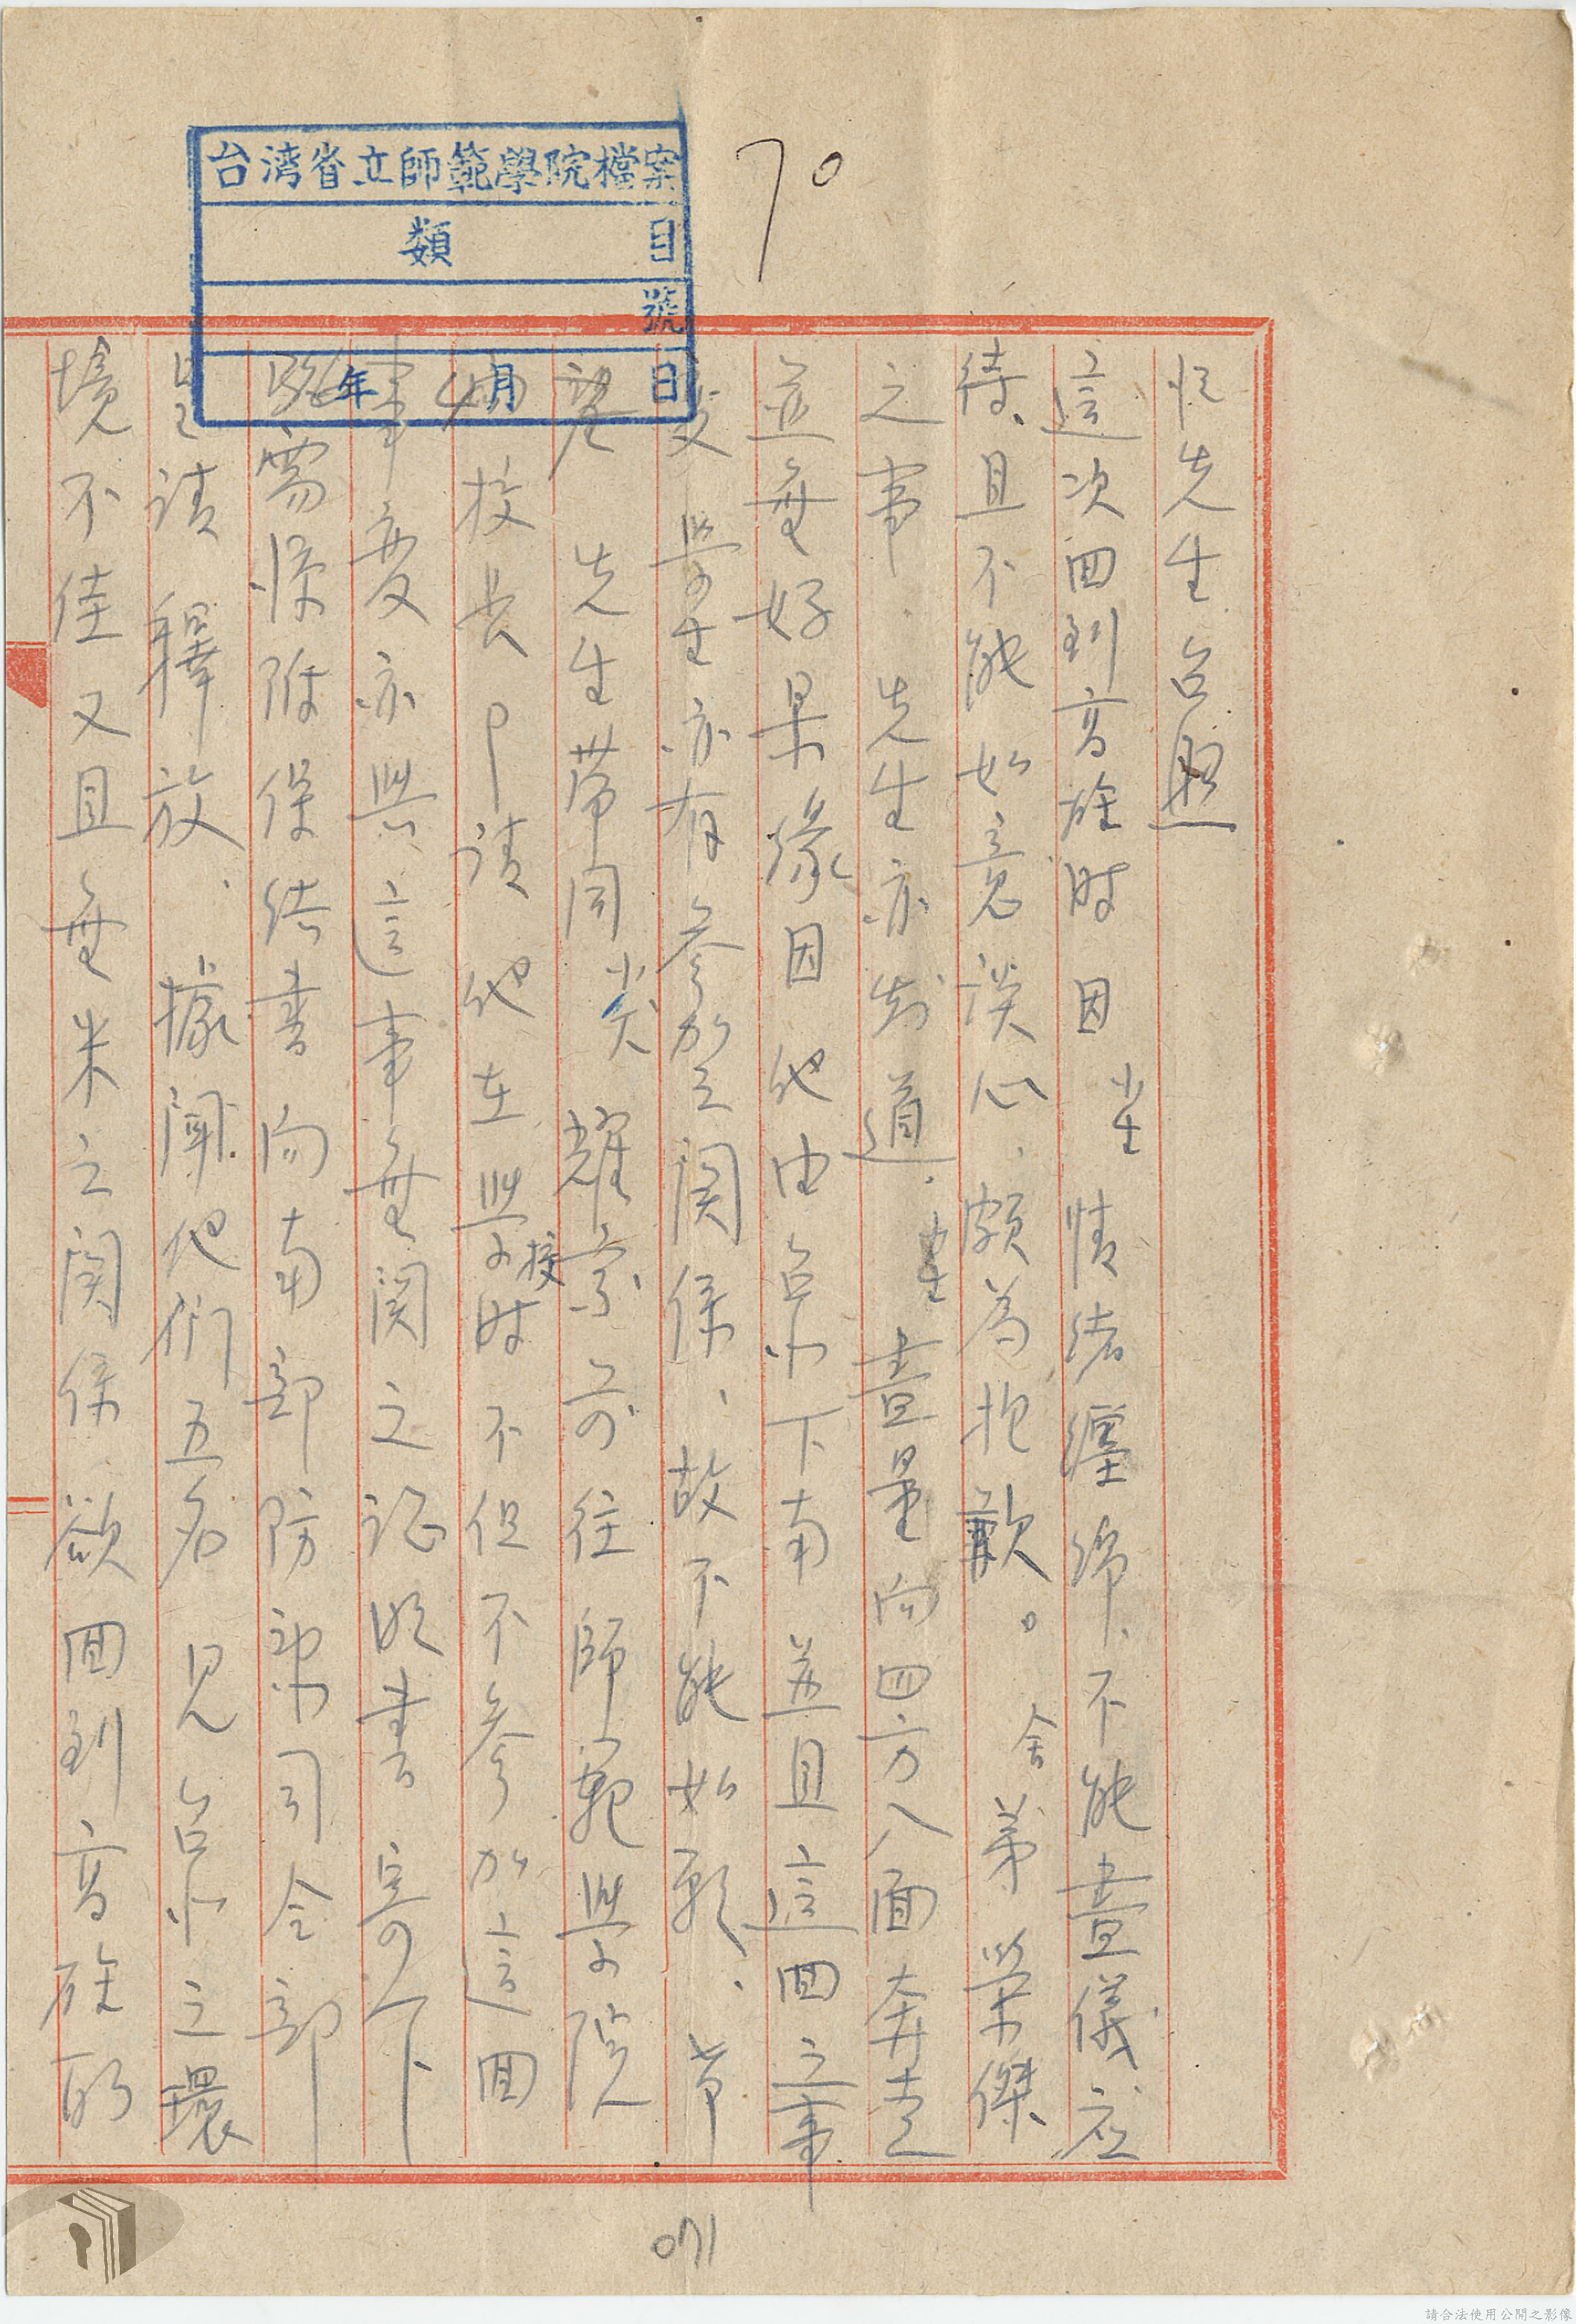 70
台湾省立師範學院檔案
類 目
號
年 月 日
恒先生台照
這次回到高雄时因生情绪纒綿、不能尽儀応
待、且不能如意談心、頗為抱歉。舍弟 榮傑
之事、先生亦知道、生尽量向四方八面奔走
並無好果緣因他由台北下南並且這回之事
变学生亦有参加之関係、故不能如愿、
望 先生帶同犬耀宗前往師範学院
校長 請他在学校时不但不参加這回
事变亦與這事無関之证明書寄下
需附保结書向南部防衛司令部
呈请釋放、據聞他们五名見台北之環
境不佳又且無米之関係欲回到高雄
071
請合法使用公開之影像